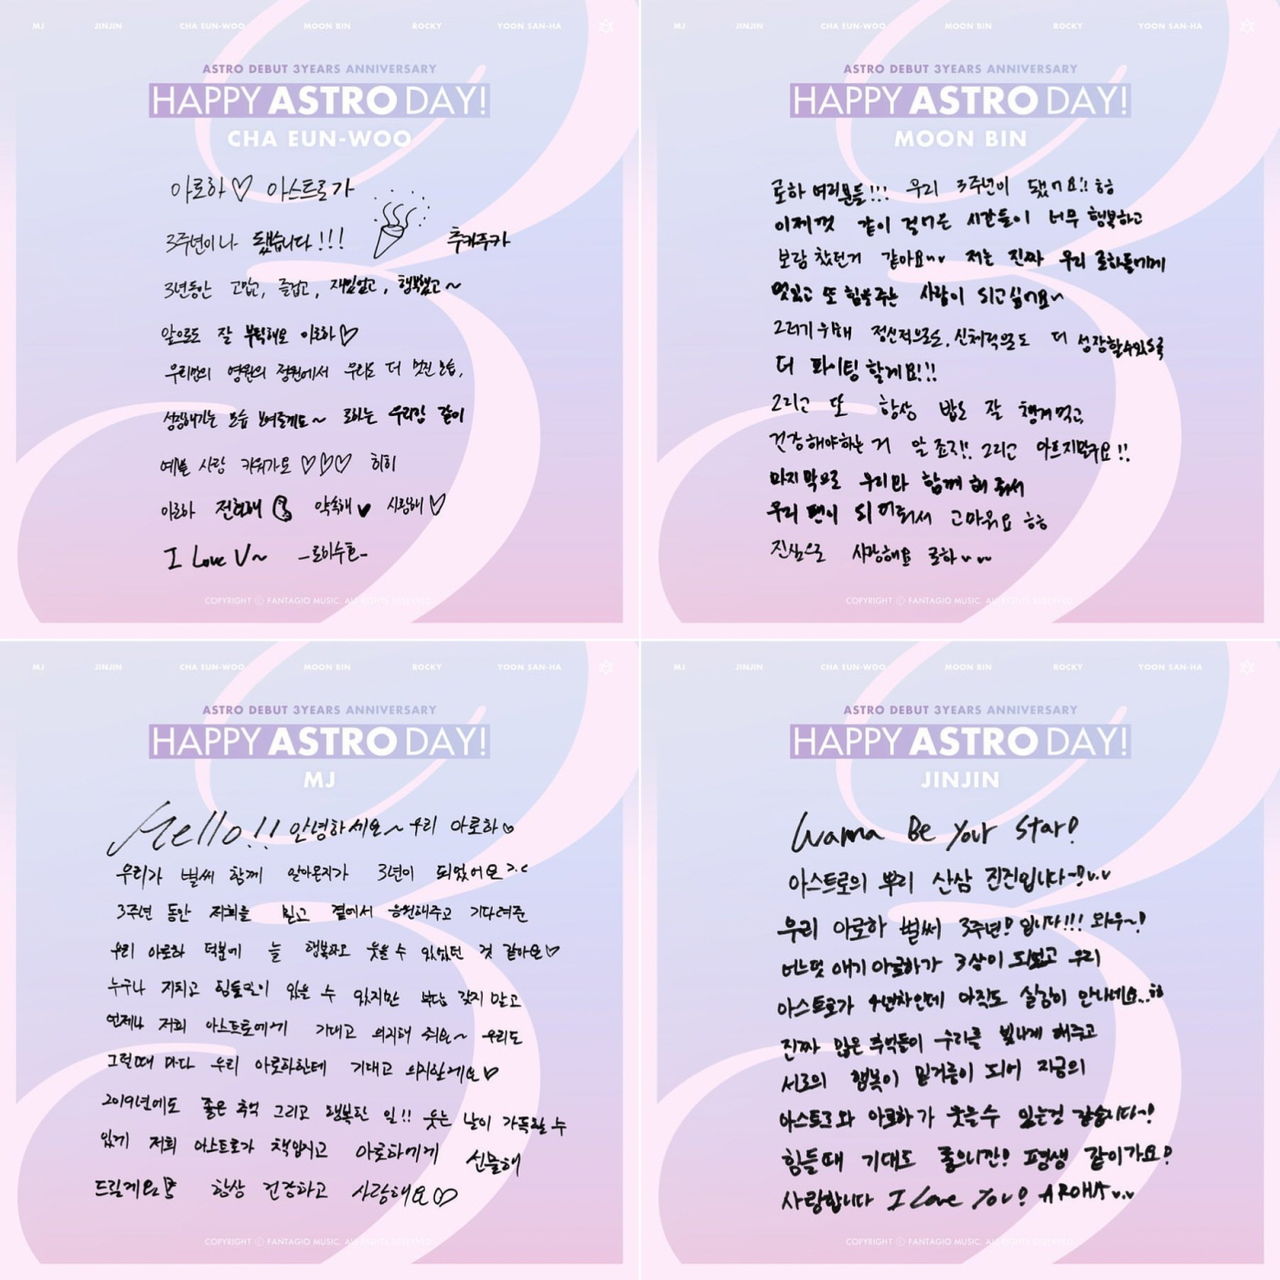 MJ JINJIN CHA EUN-WOO MOON BIN ROCKY YOON SAN-HA
ASTRO DEBUT 3YEARS ANNIVERSARY
HAPPY ASTRO DAY!
CHA EUN-WOO
아로하♡ 아스트로가
3주년이나 됐습니다!!! 추카추카
3년동안 고맙고, 즐겁고, 재밌었고, 행복했고~
앞으로도 잘 부탁해요 아로하♡
우리만의 영원의 정원에서 우리 더 멋진 모습,
성장해가는 모습 보여줄게요~ 로하는 우리랑 같이
예쁠 사랑 키워가요 ♡♡♡ 히히
아로하 전화해 약속해♥ 사랑해♡
I Love U~
COPYRIGHT ⓒ FANTAGIO MUSIC. ALL RIGHTS RESERVED.
MJ JINJIN CHA EUN-WOO MOON BIN ROCKY YOON SAN-HA
ASTRO DEBUT 3YEARS ANNIVERSARY
HAPPY ASTRO DAY!
MOON BIN
로하 여러분들!!! 우리 3주년이 됐어요!! ㅎㅎ
이제껏 같이 걷는 시간들이 너무 행복하고
보람찼던거 같아요~ 저는 진짜 우리 로하들에게
멋있고 또 힘을 주는 사람이 되고싶어요~
그러기 위해 정신적으로도, 신체적으로도 더 성장할 수 있도록
더 파이팅 할게요!!!
그리고 또 항상 밥도 잘 챙겨먹고
건강해야하는 거 알죠?!! 그리고 아프지말구요!!
마지막으로 우리와 함께 해 줘서
우리 팬이 되어줘서 고마워요 ㅎㅎ
진심으로 사랑해요 로하
COPYRIGHT ⓒ FANTAGIO MUSIC. ALL RIGHTS RESERVED.
MJ JINJIN CHA EUN-WOO MOON BIN ROCKY YOON SAN-HA
ASTRO DEBUT 3YEARS ANNIVERSARY
HAPPY ASTRO DAY!
MJ
Hello!! 안녕하세요~ 우리 아로하♡
우리가 벌써 함께 알아온지가 3년이 되었어요 >.<
3주년 동안 저희를 믿고 곁에서 응원해주고 기다려준
우리 아로하 덕분에 늘 행복하고 웃을 수 있었던 것 같아요♡
누구나 지치고 힘들 일이 있을 수 있지만 부담 갖지 말고
언제나 저희 아스트로에게 기대고 의지해 줘요~ 우리도
그럴때 마다 우리 아로하한테 기대고 의지할게요♡
2019년에도 좋은 추억 그리고 행복한 일!! 웃는 날이 가득할 수
있게 저희 아스트로가 책임지고 아로하에게 선물해
드릴게요 항상 건강하고 사랑해요♡
COPYRIGHT ⓒ FANTAGIO MUSIC. ALL RIGHTS RESERVED.
MJ JINJIN CHA EUN-WOO MOON BIN ROCKY YOON SAN-HA
ASTRO DEBUT 3YEARS ANNIVERSARY
HAPPY ASTRO DAY!
JINJIN
Wanna Be Your Star!
아스트로의 뿌리 산삼 진진입니다~!
우리 아로하 벌써 3주년! 입니다!!! 와우~!
어느덧 애기 아로하가 3살이 되었고 우리
아스트로가 4년차인데 아직도 실감이 안나네요..ㅎㅎ
진짜 많은 추억들이 우리를 빛나게 해주고
서로의 행복이 밑거름이 되어 지금의
아스트로와 아로하가 웃을 수 있는것 같습니다~!
힘들때 기대도 좋으니깐! 평생 같이가요?
사랑합니다 I Love You! AROHA
COPYRIGHT ⓒ FANTAGIO MUSIC. ALL RIGHTS RESERVED.